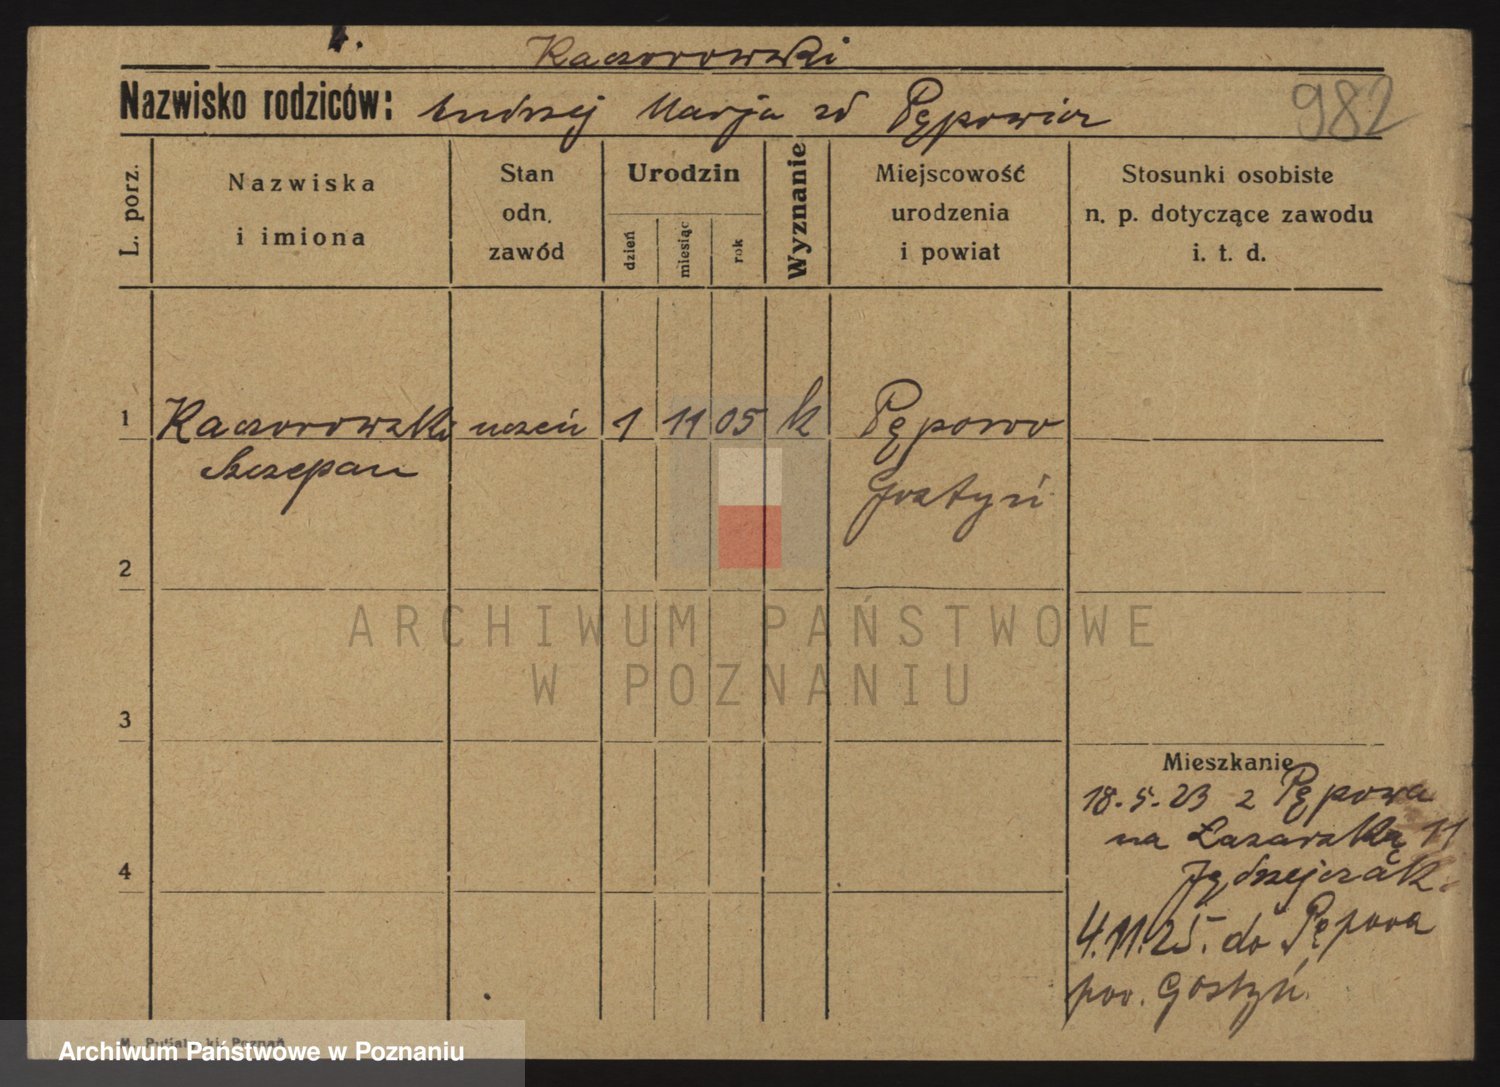 Kaczorowski
Nazwisko rodziców: Andrzej Marja zd Pępowicz
982
L. porz.
Nazwiska
i imiona
Stan
odn.
zawód
Urodzin
dzień
miesiąc
rok
Wyznanie
Miejscowość
urodzenia
i powiat
Stosunki osobiste
n. p. dotyczące zawodu
i. t. d.
1 Kaczorowski uczeń 1 11 05 k Pępowo
Szczepan Gostyń
2
ARCHIWUM PAŃSTWOWE
W POZNANIU
3
Mieszkanie
18.5.23 z Pępowa
na Łazarską 11
Jędrzejczak
4
4.11.25. do Pępowa
pow. Gostyń
Poznań
Archiwum Państwowe w Poznaniu